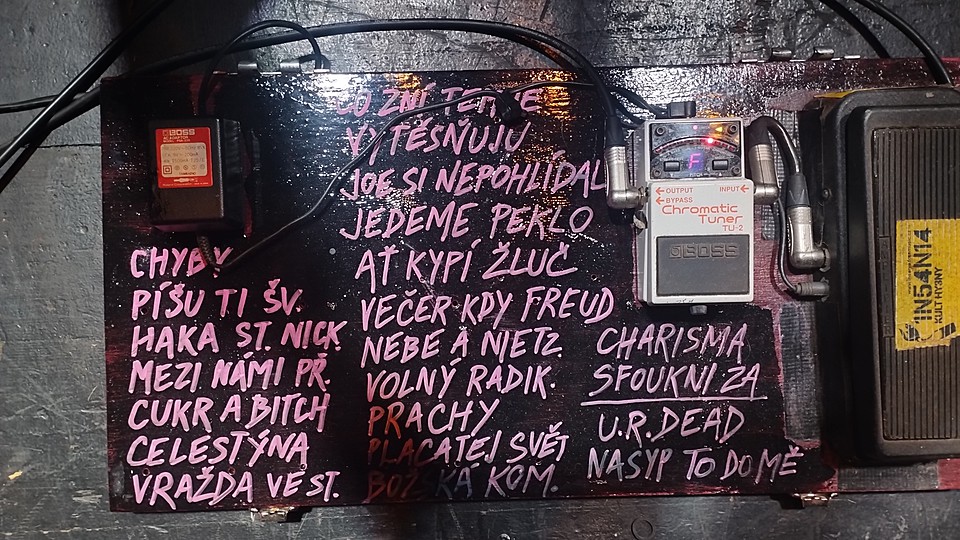 CHYBY
PÍŠU TI ŠV.
HAKA ST. NICK
MEZI NÁMI PŘ.
CUKR A BITCH
CELESTÝNA
VRAŽDA VE ST.
CO ZNÍ
VYTĚSŇUJU
JOE SI NEPOHLÍDAL
JEDEME PEKLO
AŤ KYPÍ ŽLUČ
VEČER KDY FREUD
NEBE A NIETZ.
VOLNÝ RADIK.
PRACHY
PLACATEJ SVĚT
BOŽSKÁ KOM.
CHARISMA
SFOUKNI ZA
U.R. DEAD
NASYP TO DO MĚ
BOSS
AC ADAPTOR
F
OUTPUT
INPUT
BYPASS
Chromatic
Tuner
TU-2
BOSS
PIN54N14
KULT HYGNY